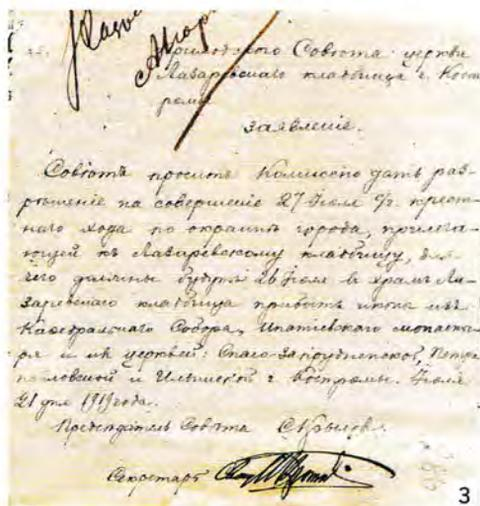 Приходского Совѣта церкви
Лазаревскаго кладбища г. Кост
ромы
заявленіе.
Совѣтъ проситъ Комиссію дать раз-
рѣшеніе на совершеніе 27 Іюля с/г. крест-
наго хода по окраинѣ города, прилега-
ющей къ Лазаревскому кладбищу, для
чего должны будутъ 26 Іюля въ храмъ Ла-
заревскаго кладбища прибыть иконы изъ
Кафедральнаго Собора, Ипатіевскаго монасты-
ря и изъ церквей: Спасо-Запрудненской, Петро
павловской и Ильинской г. Костромы. Іюля
21 дня 1919 года.
Предсѣдатель Совѣта
Секретарь
3